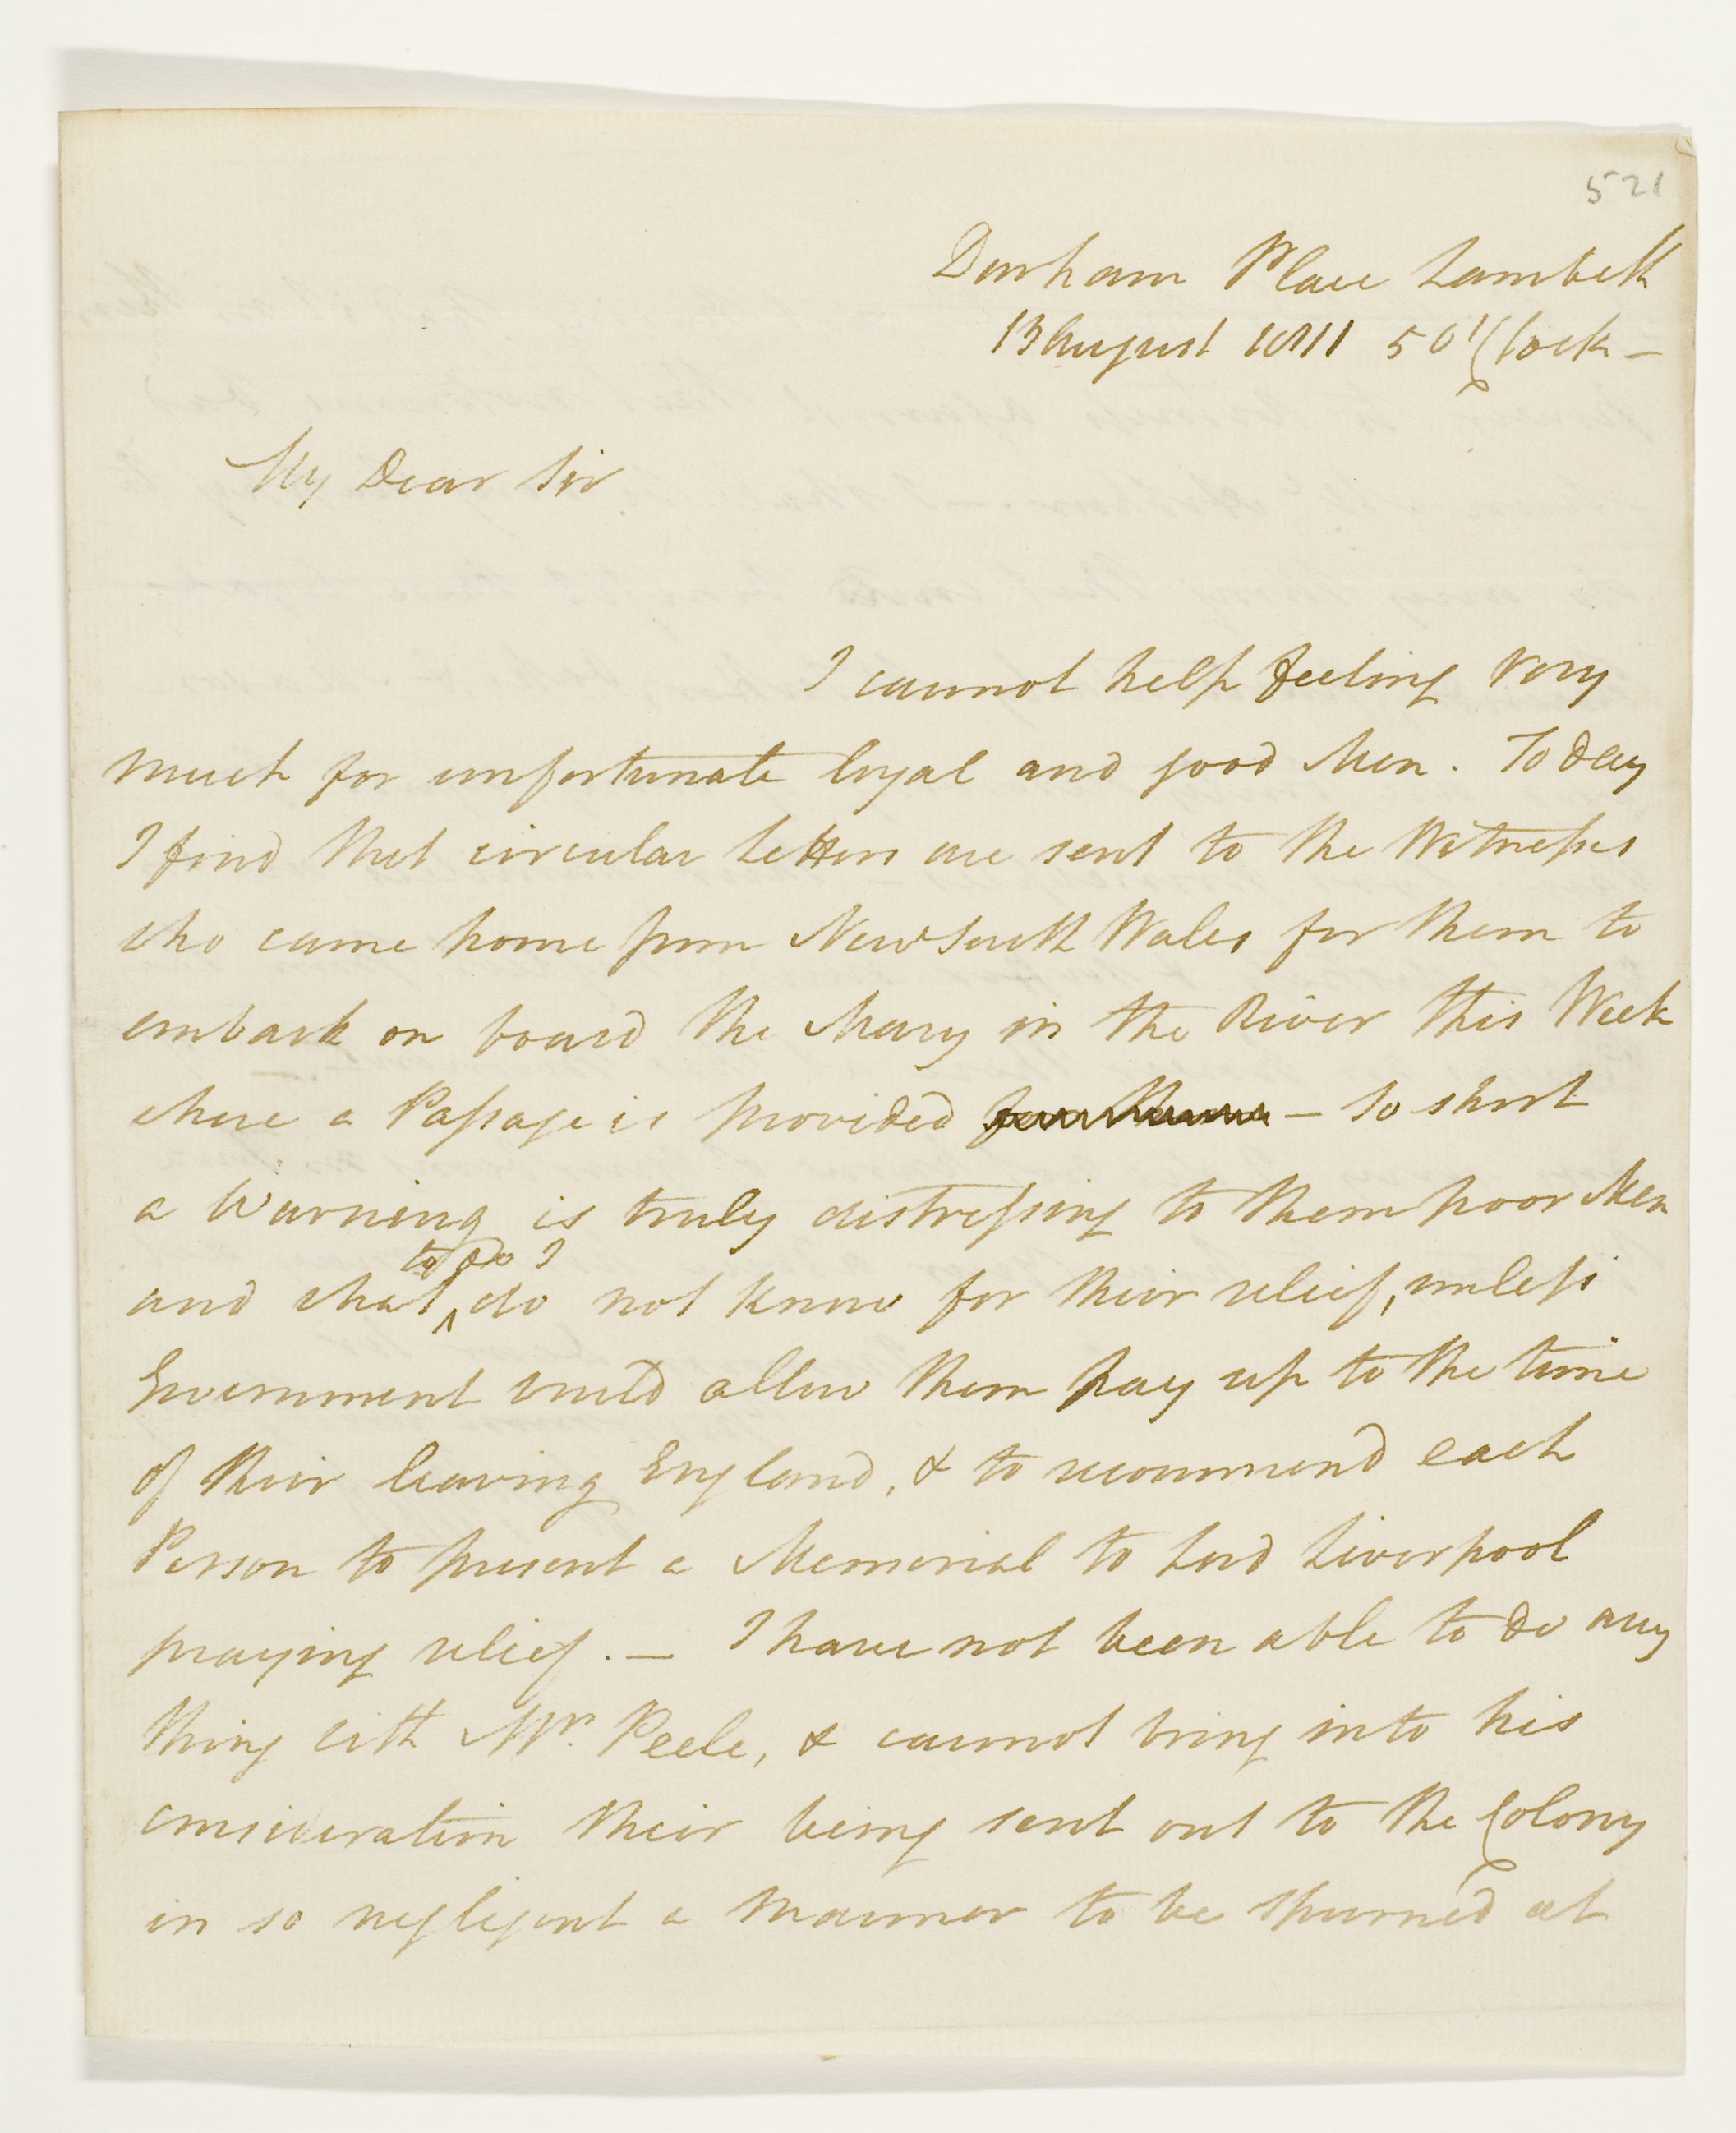 521
Durham Place Lambeth
13 August 1811 5 O'Clock —
My Dear Sir
I cannot help feeling very
much for unfortunate loyal and good Men. To day
I find that circular letters are sent to the Witnesses
who came home from New South Wales for them to
embark on board the Mary in the River this Week
where a Passage is provided — so short
a Warning is truly distressing to them poor Men
to do I
and what ^ do not know for their relief, unless
Government would allow them pay up to the time
of their leaving England, & to recommend each
Person to present a Memorial to Lord Liverpool
praying relief. — I have not been able to do any
thing with Mr. Peele, & cannot bring into his
consideration their being sent out to the Colony
in so negligent a manner to be spurned at